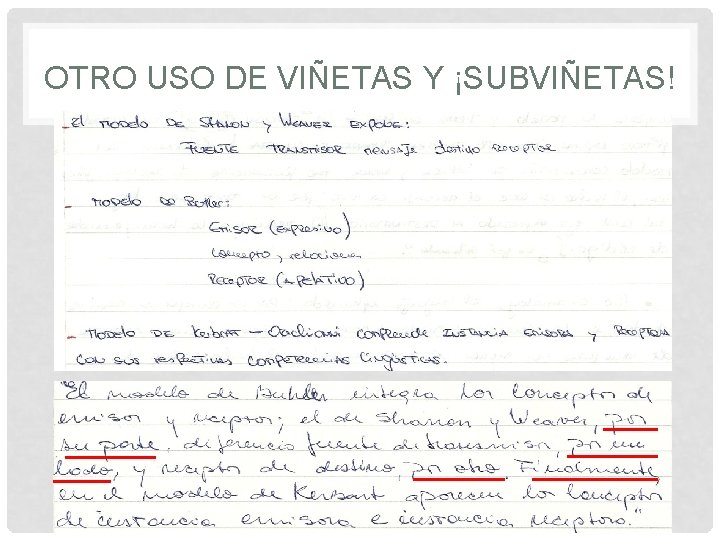 OTRO USO DE VIÑETAS Y ¡SUBVIÑETAS!
- El MODELO DE SHANON y WEAVER EXPONE:
FUENTE TRANSMISOR MENSAJE destino RECEPTOR
- MODELO DE Buhler:
EMISOR (expresivo)
Concepto y relaciones
RECEPTOR (APELATIVO)
- MODELO DE Kerbrat - Orechioni COMPRENDE INSTANCIA EMISORA y RECEPTORA
CON SUS RESPECTIVAS COMPETENCIAS lingüísticas.
"El modelo de Buhler integra los conceptos de
emisor y receptor; el de Shannon y Weaver, por
su parte, diferencia fuente de transmisor, por un
lado, y receptor de destino, por otro. Finalmente,
en el modelo de Kerbrat aparecen los conceptos
de instancia emisora e instancia receptora."